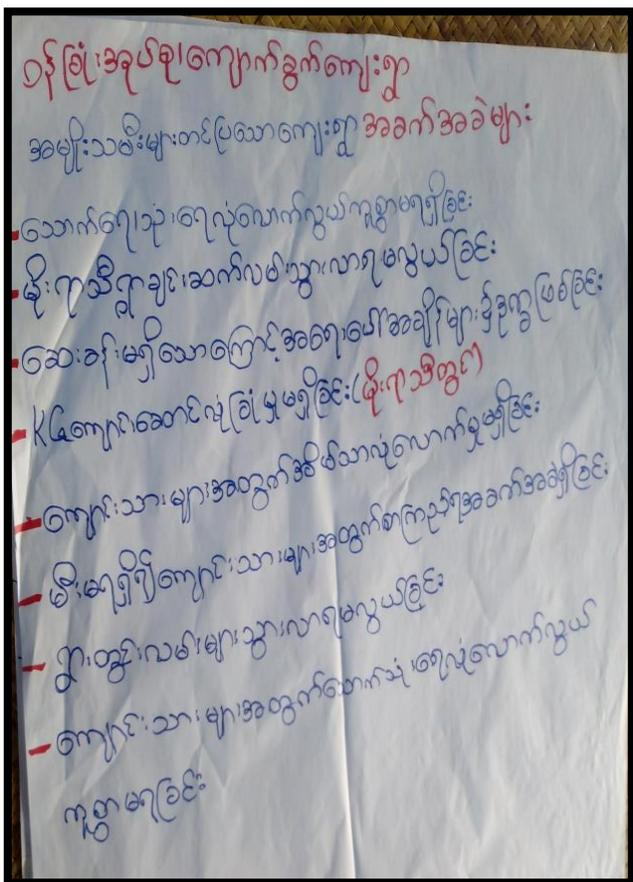 ဝန်ခြုံးအုပ်စု၊ကျောက်ခွက်ကျေးရွာ
အမျိုးသမီးများတင်ပြသောကျေးရွာအခက်အခဲများ
- သောက်ရေ၊သုံးရေလုံလောက်လွယ်ကူစွာမရရှိခြင်း
- မိုးရာသီရွာချင်းဆက်လမ်းသွားလာရမလွယ်ခြင်း
- ဆေးခန်းမရှိသောကြောင့်အရေးပေါ်အချိန်များ၌ဒုက္ခဖြစ်ခြင်း
- KGကျောင်းဆောင်လုံခြုံမှုမရှိခြင်း(မိုးရာသီတွင်)
- ကျောင်းသားများအတွက်အိမ်သာလုံလောက်မှုမရှိခြင်း
- မီးမရရှိ၍ကျောင်းသားများအတွက်စာကြည့်ရအခက်အခဲရှိခြင်း
- ရွာတွင်းလမ်းများသွားလာရမလွယ်ခြင်း
- ကျောင်းသားများအတွက်သောက်သုံးရေလုံလောက်လွယ်
ကူစွာမရခြင်း